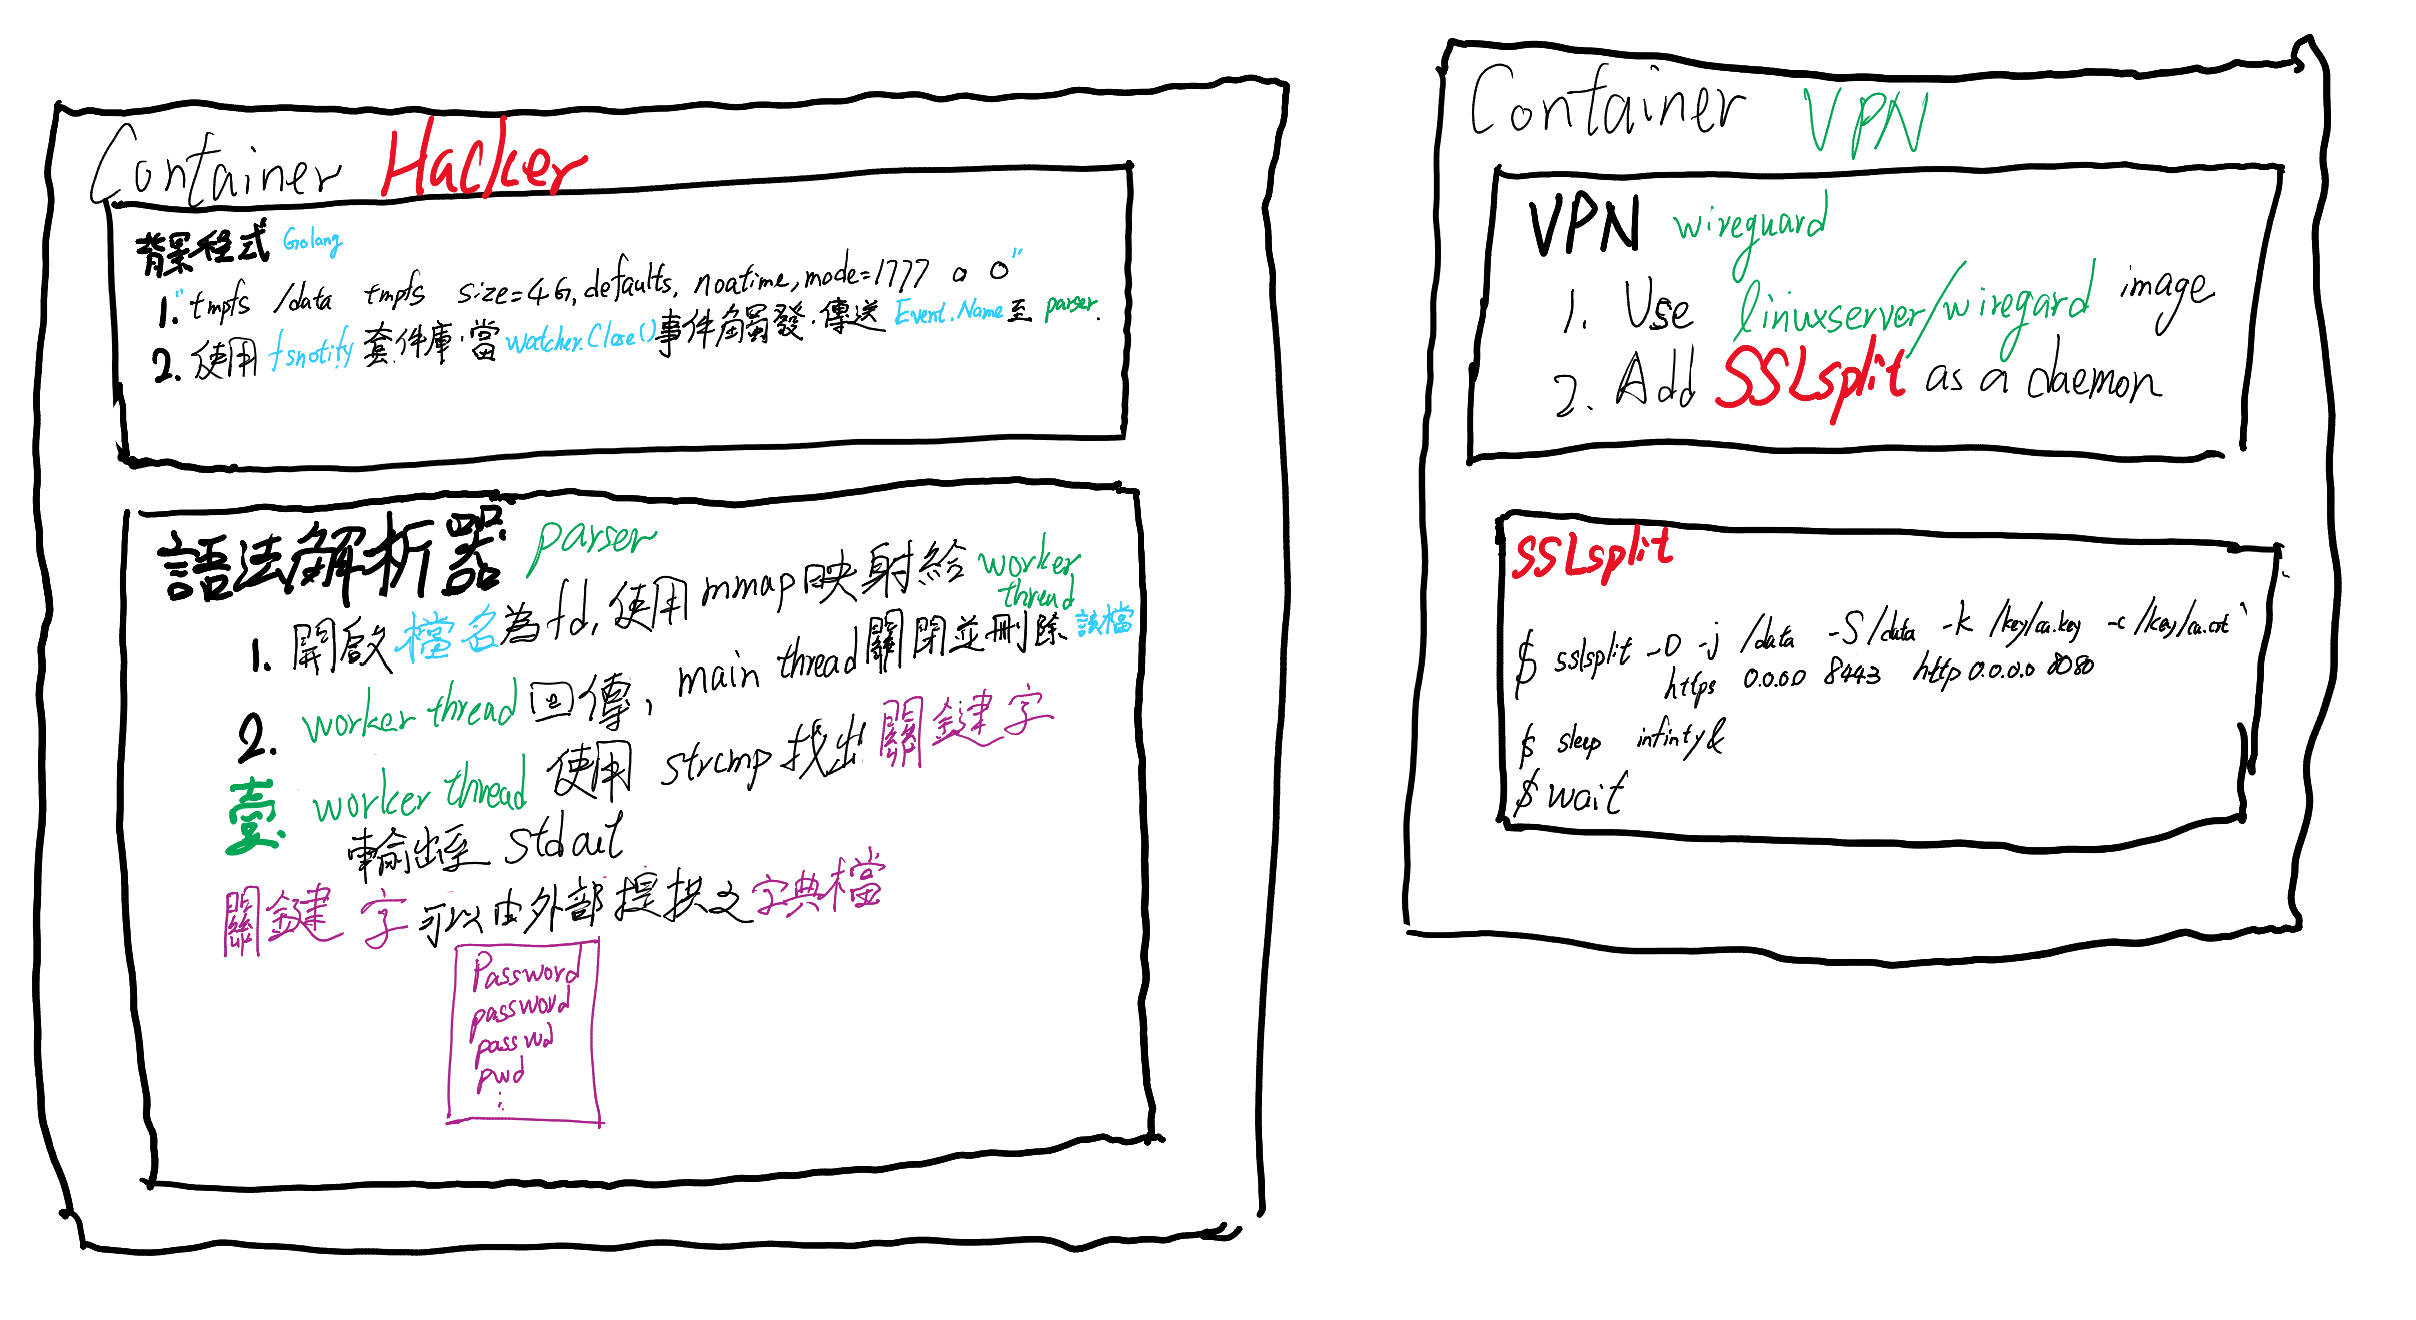 Container Hacker
背景程式 Golang
1. "tmpfs /data tmpfs size=4G, defaults, noatime, mode=1777 0 0"
2. 使用 fsnotify 套件庫,當 watcher.Close()事件觸發,傳送 Event.Name 至 parser.
語法解析器 parser
1. 開啟檔名為fd, 使用 mmap映射給 worker thread
2. worker thread 回傳, main thread關閉並刪除該檔
壹. worker thread 使用 strcmp 找出 關鍵字
輸出至 stdout
關鍵字可以由外部提拱之字典檔
Password
password
passwd
pwd
⋮
Container VPN
VPN wireguard
1. Use linuxserver/wiregard image
2. Add SSLsplit as a daemon
SSLsplit
$ sslsplit -D -j /data -S /data -k /key/ca.key -c /key/ca.crt
https 0.0.0.0 8443 http 0.0.0.0 8080
$ sleep infinty&
$ wait